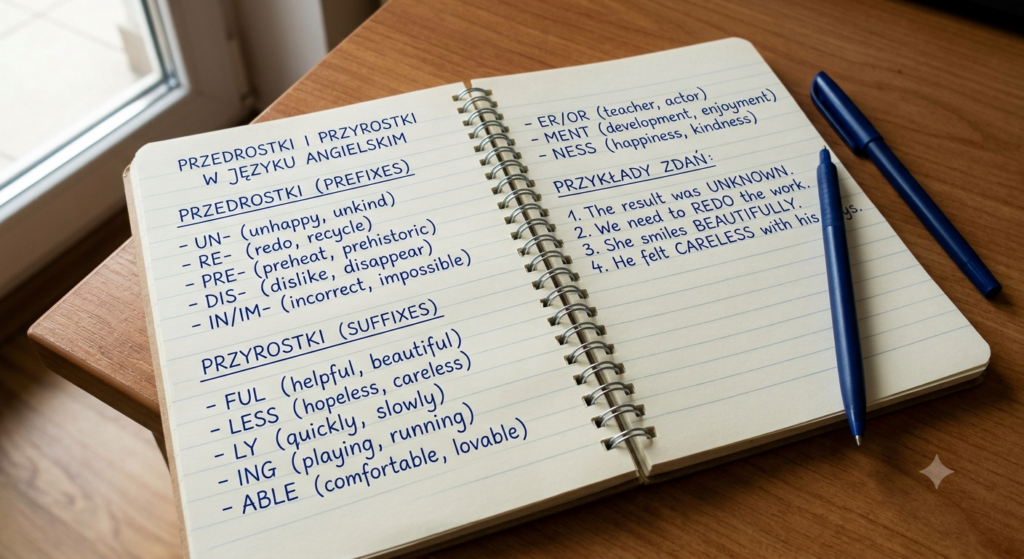 PRZEDROSTKI I PRZYROSTKI
W JĘZYKU ANGIELSKIM
PRZEDROSTKI (PREFIXES)
- UN- (unhappy, unkind)
- RE- (redo, recycle)
- PRE- (preheat, prehistoric)
- DIS- (dislike, disappear)
- IN/IM- (incorrect, impossible)
PRZYROSTKI (SUFFIXES)
- FUL (helpful, beautiful)
- LESS (hopeless, careless)
- LY (quickly, slowly)
- ING (playing, running)
- ABLE (comfortable, lovable)
- ER/OR (teacher, actor)
- MENT (development, enjoyment)
- NESS (happiness, kindness)
PRZYKŁADY ZDAŃ:
1. The result was UNKNOWN.
2. We need to REDO the work.
3. She smiles BEAUTIFULLY.
4. He felt CARELESS with his